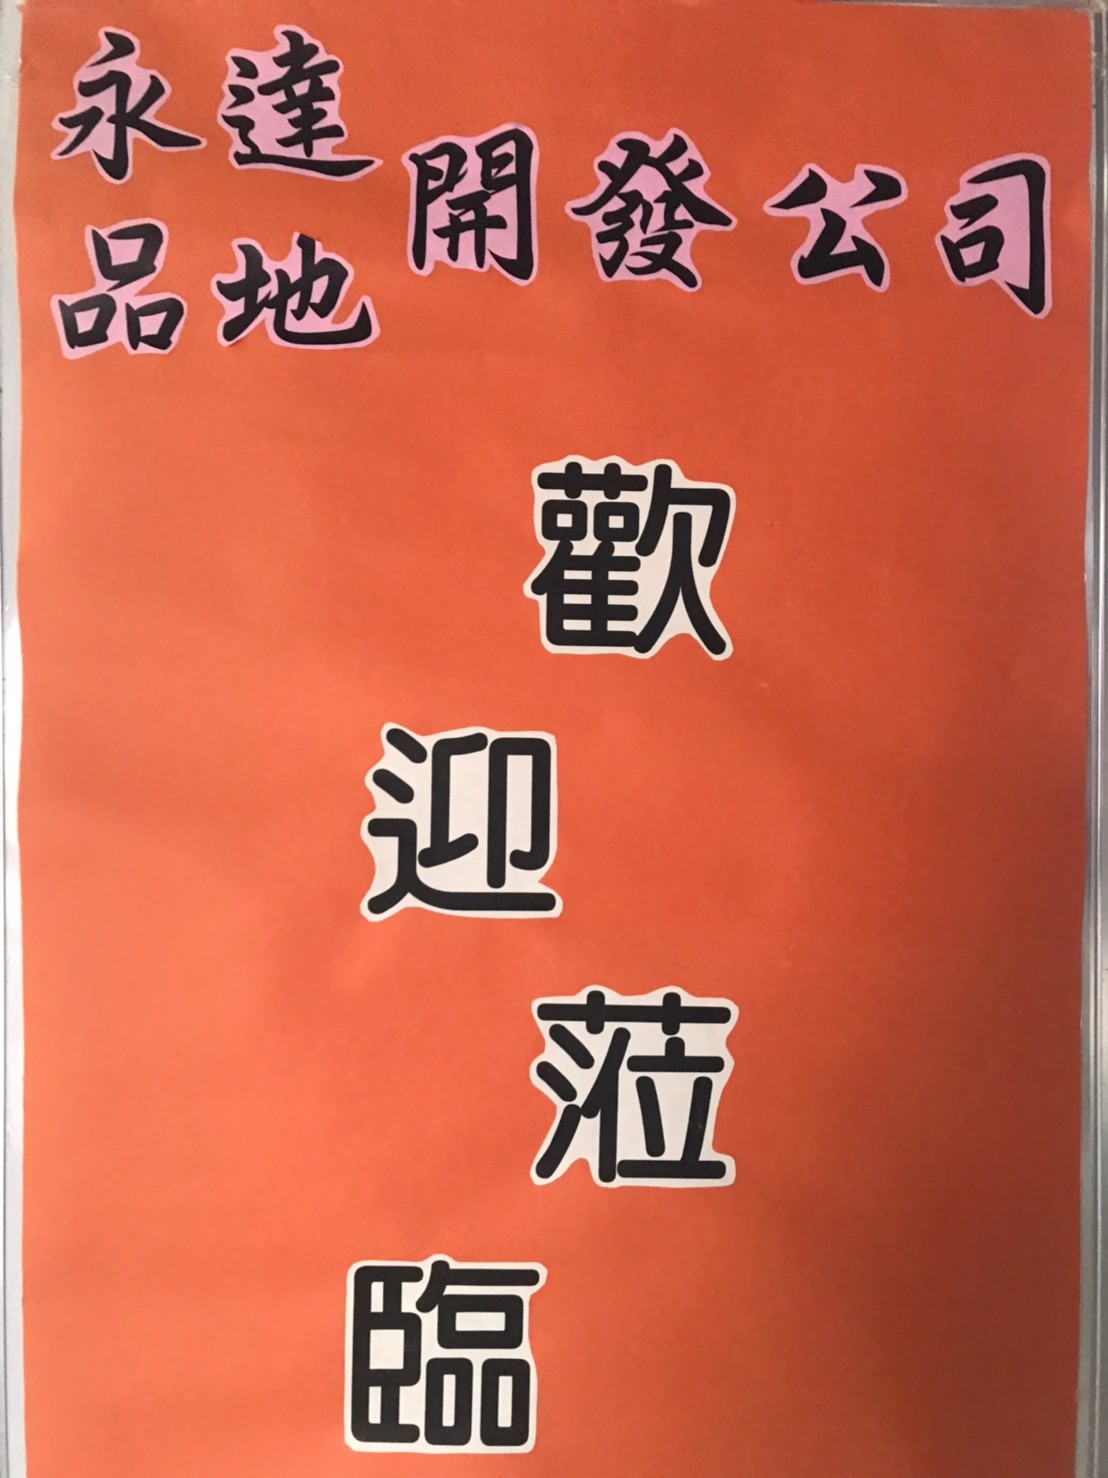 永達
品地
開發公司
歡
迎
蒞
臨